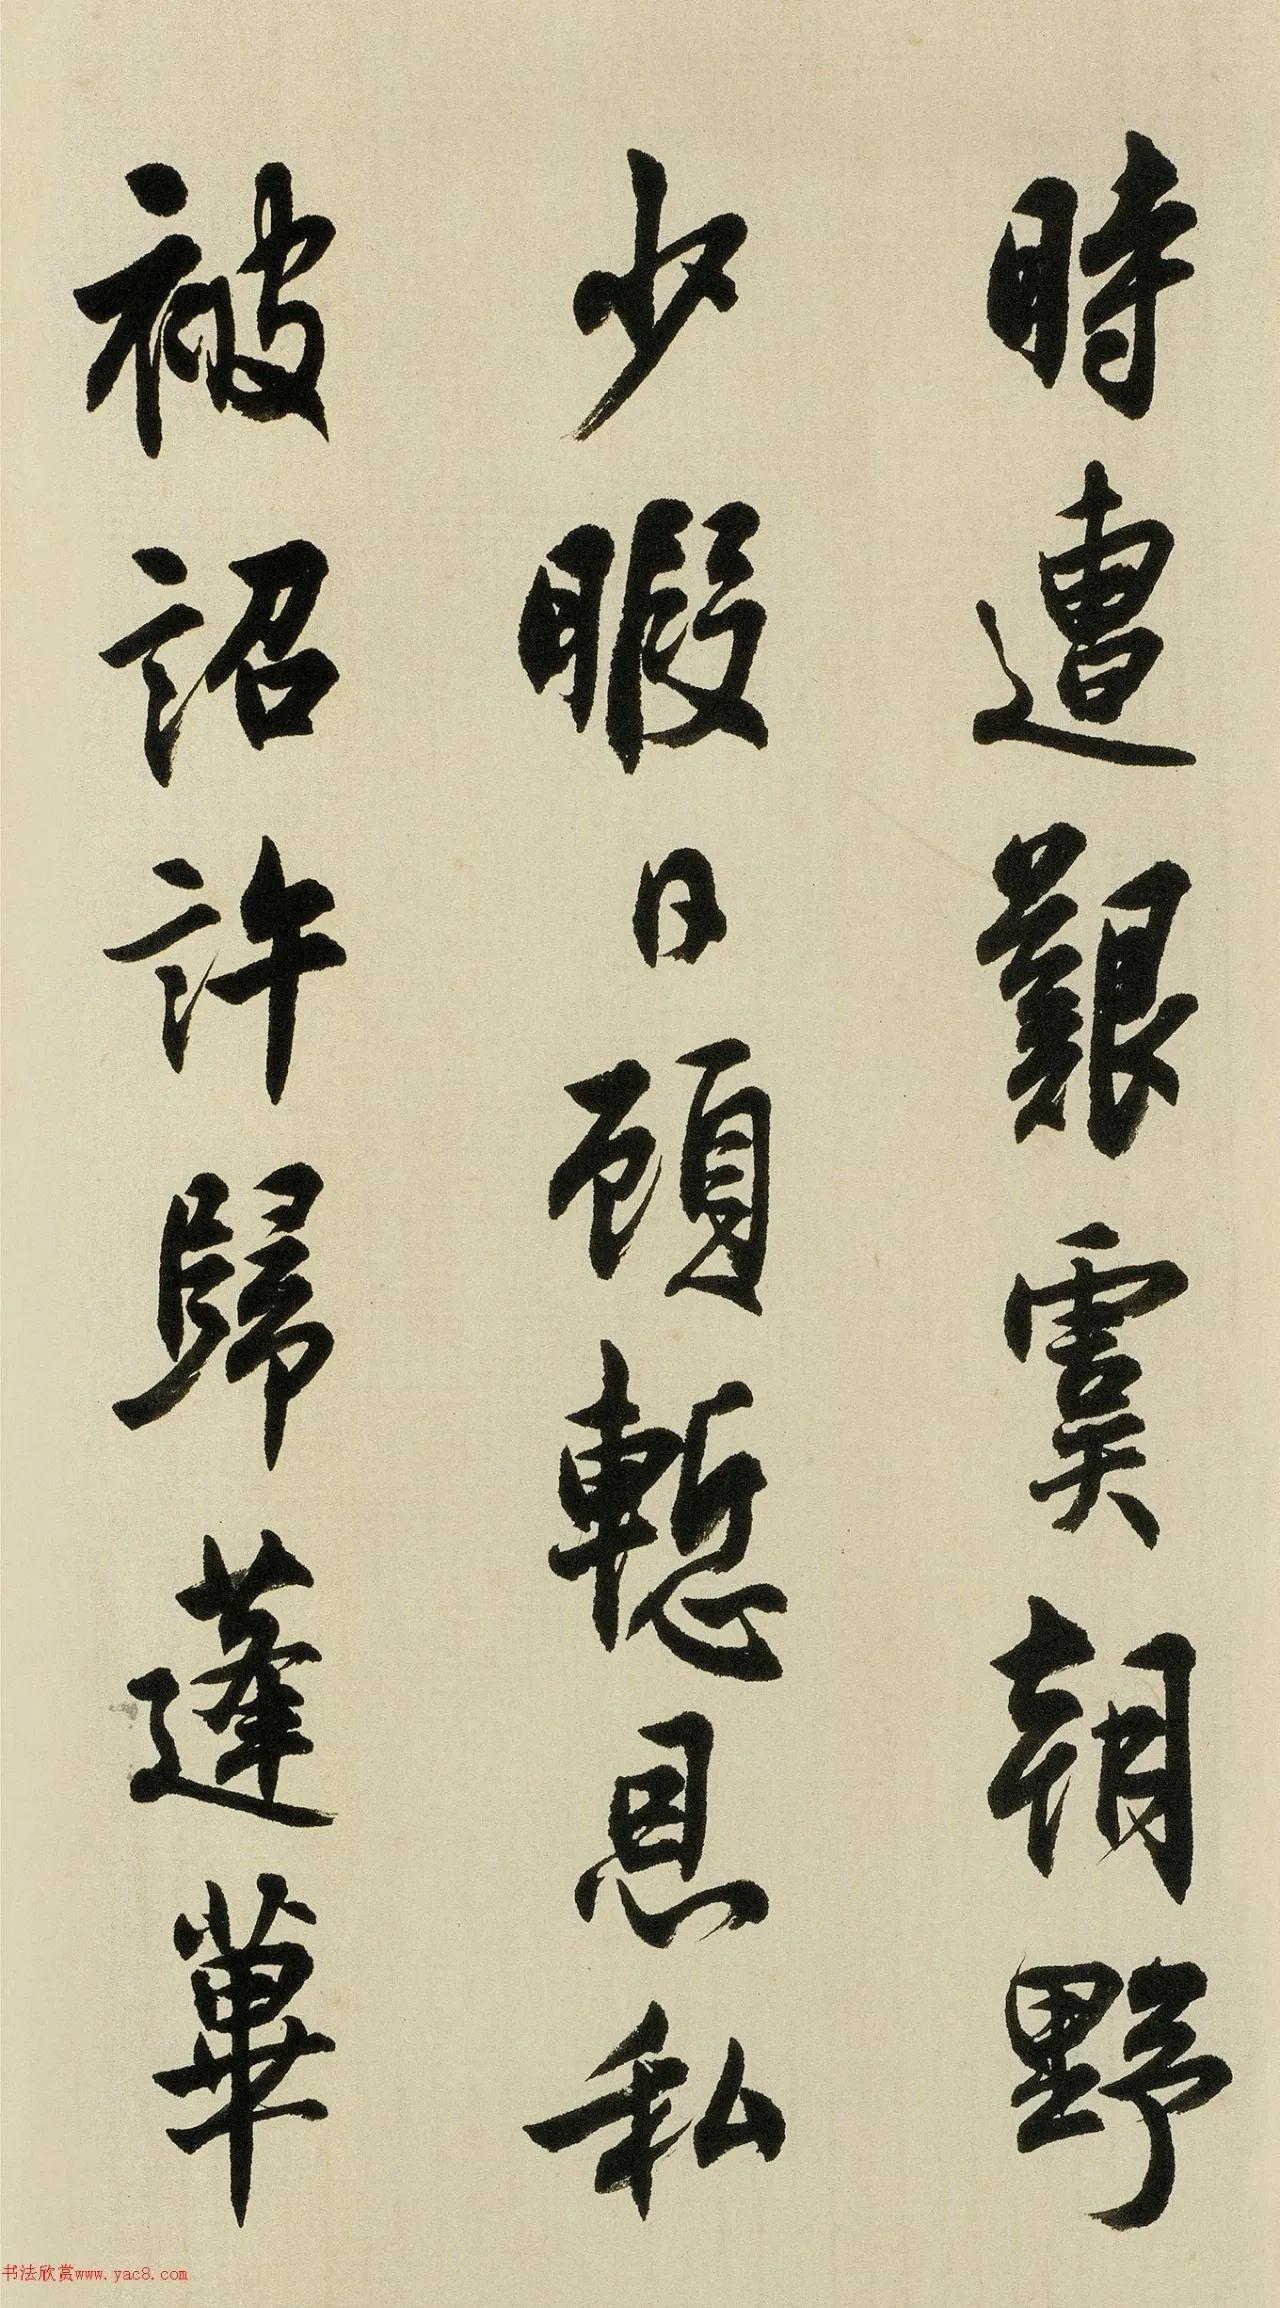 時遭艱虞朝野
少暇日顧慙恩私
被詔許歸蓬蓽
书法欣赏www.yac8.com